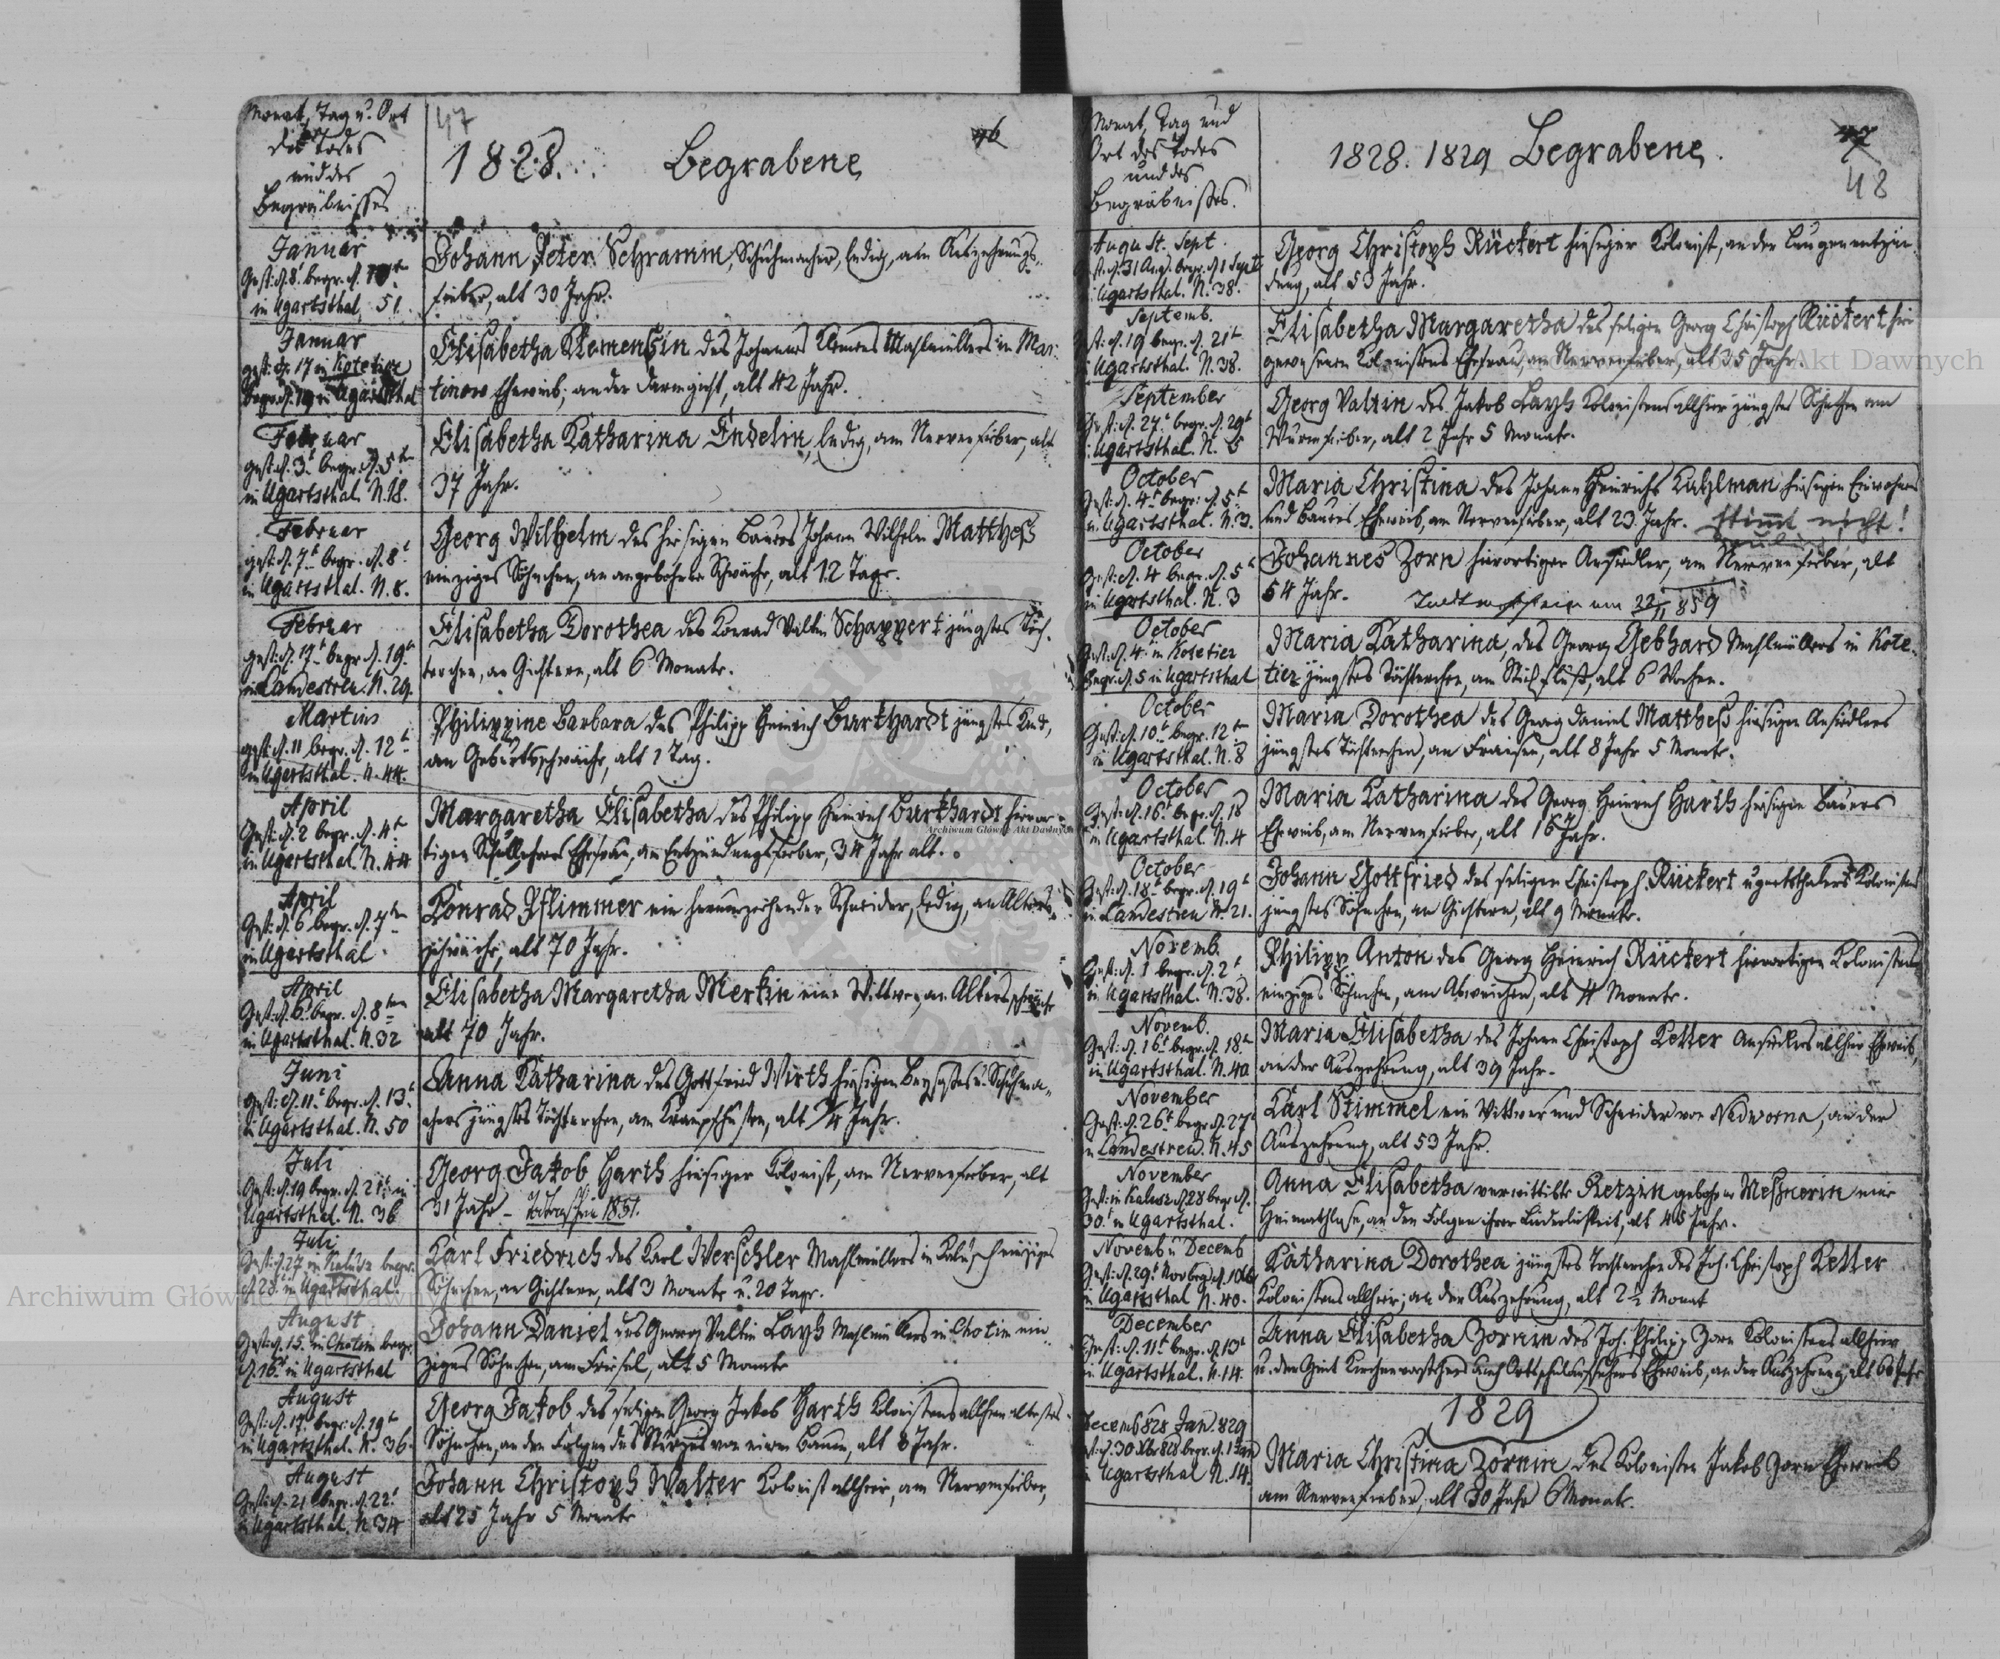 Monat, Tag u. Ort
des Todes
und des
Begräbnisses
47
1828. Begrabene
46
Januar
Gest: d. 8t begr. d. 10ten
in Ugartsthal, 51.
Johann Peter Schramm, Schuhmacher, ledig, am Auszehrungs-
fieber, alt 30 Jahr.
Januar
gest: d. 17 in Kotetier
begr. d. 19 in Ugartsthal
Elisabetha Klemensin des Johannes Klemens Mahlmüllers in Mar-
tinow Eheweib, an der Darmgicht, alt 42 Jahr.
Februar
gest: d. 3t begr. d. 5ten
in Ugartsthal. N. 18.
Elisabetha Katharina Endelin, ledig, am Nervenfieber, alt
37 Jahr.
Februar
gest: d. 7t begr. d. 8t
in Ugartsthal. N. 8.
Georg Wilhelm des hiesigen Bauers Johann Wilhelm Mattheß
einziges Söhnchen, an angebohrner Schwäche, alt 12 Tage.
Februar
gest: d. 17t begr. d. 19t
in Landestreu. N. 29.
Elisabetha Dorothea des Konrad Valtin Schappert jüngstes Töch-
terchen, an Gichtern, alt 6 Monate.
Martius
gest: d. 11 begr. d. 12t
in Ugartsthal. N. 44.
Philippine Barbara des Philipp Heinrich Burkhardt jüngstes Kind,
an Geburtsschwäche, alt 1 Tag.
April
Gest: d. 2 begr. d. 4t
in Ugartsthal. N. 44
Margaretha Elisabetha des Philipp Heinrich Burkhardt hieror-
tigen Schullehrers Ehefrau, an Entzündungsfieber, 34 Jahr alt.
April
Gest: d. 6 begr. d. 7ten
in Ugartsthal
Konrad Pflimmer ein herumziehender Schneider, ledig, an Alters-
schwäche, alt 70 Jahr.
April
Gest: d. 6t begr. d. 8ten
in Ugartsthal. N. 32
Elisabetha Margaretha Merkin eine Wittwe, an Altersschwäche
alt 70 Jahr.
Juni
gest: d. 11t begr. d. 13t
in Ugartsthal. N. 50
Anna Katharina des Gottfried Wirth hiesigen Beysaßes u. Schuhma-
chers jüngstes Töchterchen, am Krampfhusten, alt Jahr.
Juli
Gest: d. 19 begr. d. 21t in
Ugartsthal. N. 36
Georg Jakob Harth hiesiger Kolonist, am Nervenfieber, alt
31 Jahr - Todtenschein 1851.
Juli
Gest: d. 27 in Kalusz begr.
d. 28t in Ugartsthal.
Karl Friedrich des Karl Werschler Mahlmüllers in Kalusch einziges
Söhnchen, an Gichtern, alt 3 Monate u. 20 Tage.
August
Gest: d. 15. in Chotin begr.
d. 16t in Ugartsthal
Johann Daniel des Georg Valtin Layh Mahlmüllers in Chotin ein-
ziges Söhnchen, am Friesel, alt 5 Monate
August
Gest: d. 17t begr. d. 19t
in Ugartsthal. N. 36.
Georg Jakob des seligen Georg Jakob Harth Kolonistens allhier ältestes
Söhnchen, an den Folgen des Sturzes von einem Baum, alt 8 Jahr.
August
Gest: d. 21 begr. d. 22t
in Ugartsthal. N. 34
Johann Christoph Walter Kolonist allhier, am Nervenfieber,
alt 25 Jahr 5 Monate
Monat, Tag und
Ort des Todes
und des
Begräbnißes.
1828. 1829 Begrabene.
47
48
August. Sept.
Gest: d. 31 Aug. begr. d. 1 Sept.
in Ugartsthal. N. 38.
Georg Christoph Rückert hiesiger Kolonist, an der Lungenentzün-
dung, alt 53 Jahr.
Septemb.
Gest: d. 19 begr. d. 21t
in Ugartsthal. N. 38.
Elisabetha Margaretha des seligen Georg Christoph Rückert hier
gewesenen Kolonistens Ehefrau, am Nervenfieber, alt 35 Jahr.
September
Gest: d. 27t begr. d. 29t
in Ugartsthal. N. 5
Georg Valtin des Jakob Layh Kolonistens allhier jüngstes Söhnchen am
Wurmfieber, alt 2 Jahr 5 Monate.
October
Gest: d. 4t begr: d. 5t
in Ugartsthal. N. 3.
Maria Christina des Johann Heinrich Kutzlman hiesigen Einwohners
und Bauers Eheweib, am Nervenfieber, alt 23 Jahr. stimmt nicht!
October
Gest: d. 4 begr. d. 5t
in Ugartsthal. N. 3
Johannes Zorn hierortiger Ansiedler, am Nervenfieber, alt
54 Jahr. Todtenschein am 22/5 859
October
Gest: d. 4. in Kotetier
Begr. d. 5 in Ugartsthal
Maria Katharina, des Georg Gebhard Mahlmüllers in Kote-
tier jüngstes Töchterchen, am Stickfluß, alt 6 Wochen.
October
Gest: d. 10t begr. 12ten
in Ugartsthal. N. 8
Maria Dorothea des Georg Daniel Mattheß hiesigen Ansiedlers
jüngstes Töchterchen, an Fraisen, alt 8 Jahr 5 Monate.
October
Gest: d. 16t begr. d. 18
in Ugartsthal. N. 4
Maria Katharina des Georg Heinrich Harth hiesigen Bauers
Eheweib, am Nervenfieber, alt 16 Jahr.
October
Gest: d. 18t begr. d. 19t
in Landestreu N. 21.
Johann Gottfried des seligen Christoph Rückert ugartsthalers Kolonistens
jüngstes Söhnchen, an Gichtern, alt 9 Monate.
Novemb.
Gest: d. 1 begr. d. 2t
in Ugartsthal. N. 38.
Philipp Anton des Georg Heinrich Rückert hierortigen Kolonistens
einziges Söhnchen, am Abweichen, alt 4 Monate.
Novemb.
Gest: d. 16t begr. d. 18t
in Ugartsthal. N. 40
Maria Elisabetha des Johann Christoph Ketter Ansiedlers allhier Eheweib,
an der Auszehrung, alt 39 Jahr.
November
Gest: d. 26t begr. d. 27t
in Landestreu. N. 45
Karl Stimmel ein Wittwer und Schneider von Nadworna, an der
Auszehrung, alt 53 Jahr.
November
Gest: in Kalusz d. 28 begr. d.
30t in Ugartsthal.
Anna Elisabetha verwittibte Retzin geborne Meßnerin eine
Heimathlose, an den Folgen ihrer Liederlichkeit, alt 45 Jahr.
Novemb u Decemb
Gest: d. 29t Nov begr. d. 1 Dec
in Ugartsthal N. 40.
Katharina Dorothea jüngstes Tochterchen des Joh. Christoph Ketter
Kolonistens allhier, an der Auszehrung, alt 2½ Monat
December
Gest: d. 11t begr. d. 13t
in Ugartsthal. N. 14.
Anna Elisabetha Zornin des Joh. Philipp Zorn Kolonistens allhier
u. der Gmt Kirchenvorstehers auch Ortsschulaufsehers Eheweib, an der Auszehrung, alt 60 Jahr
1829
Decemb 828 Jan. 829
Gest: d. 30 Xbr 828 begr. d. 1 Jan
in Ugartsthal N. 14.
Maria Christina Zornin des Kolonisten Jakob Zorn Eheweib
am Nervenfieber, alt 30 Jahr 6 Monate.
Archiwum Główne Akt Dawnych
Archiwum Główne Akt Dawnych
Archiwum Główne Akt Dawnych